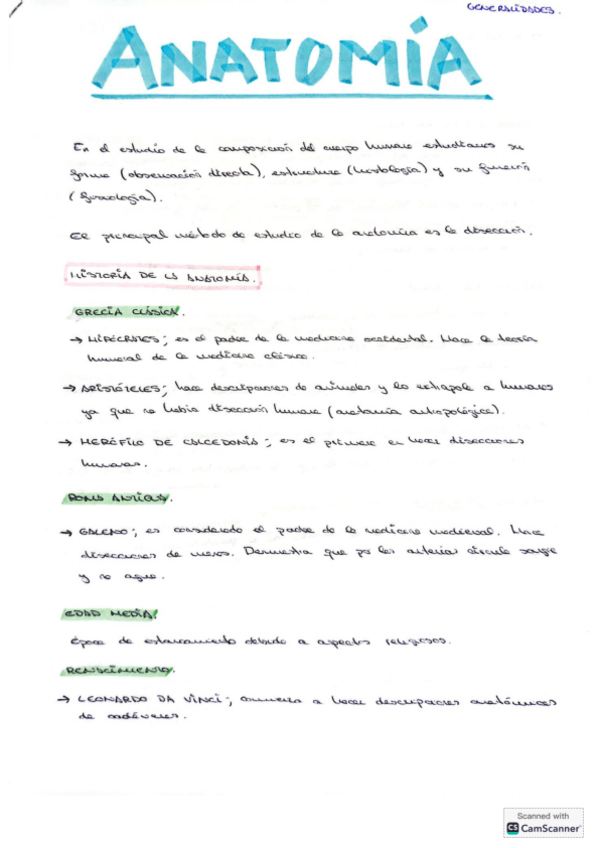 GENERALIDADES.
ANATOMÍA
Es el estudio de la composición del cuerpo humano estudiamos su
forma (observación directa), estructura (histología) y su función
(fisiología).
El principal método de estudio de la anatomía es la disección.
HISTORIA DE LA ANATOMÍA.
GRECIA CLÁSICA.
→ HIPÓCRATES; es el padre de la medicina occidental. Hace la teoría
humoral de la medicina clásica.
→ ARISTÓTELES; hace descripciones de animales y lo extrapola a humanos
ya que no había disección humana (anatomía antropológica).
→ HERÓFILO DE CALCEDONIA; es el primero en hacer disecciones
humanas.
ROMA ANTIGUA.
→ GALENO; es considerado el padre de la medicina medieval. Hace
disecciones de monos. Demuestra que por las arterias circula sangre
y no agua.
EDAD MEDIA.
Época de estancamiento debido a aspectos religiosos.
RENACIMIENTO.
→ LEONARDO DA VINCI; comienza a hacer descripciones anatómicas
de cadáveres.
Scanned with
CS CamScanner